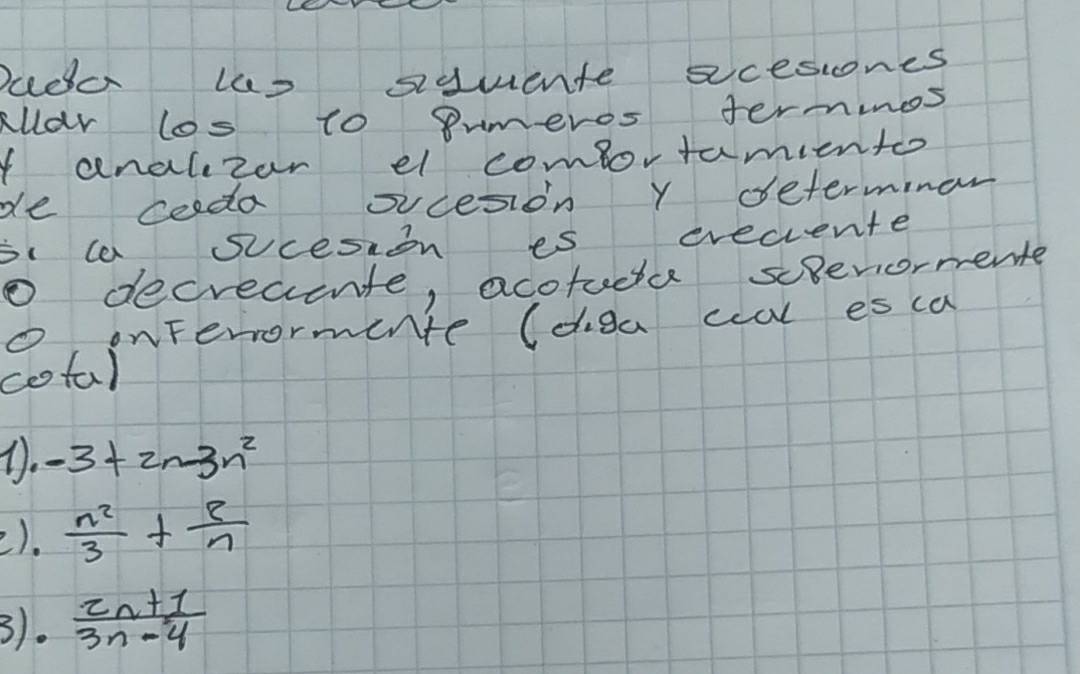 Dada las siguiente sucesiones
allar los 10 Primeros terminos
y analizar el comportamiento
de cada sucesión y determinar
si la sucesión es creciente
o decreciente, acotada superiormente
o inferiormente (diga cual es la
cota)
1). -3+2n-3n²
2). n²/3 + 2/n
3). 2n+1/3n-4